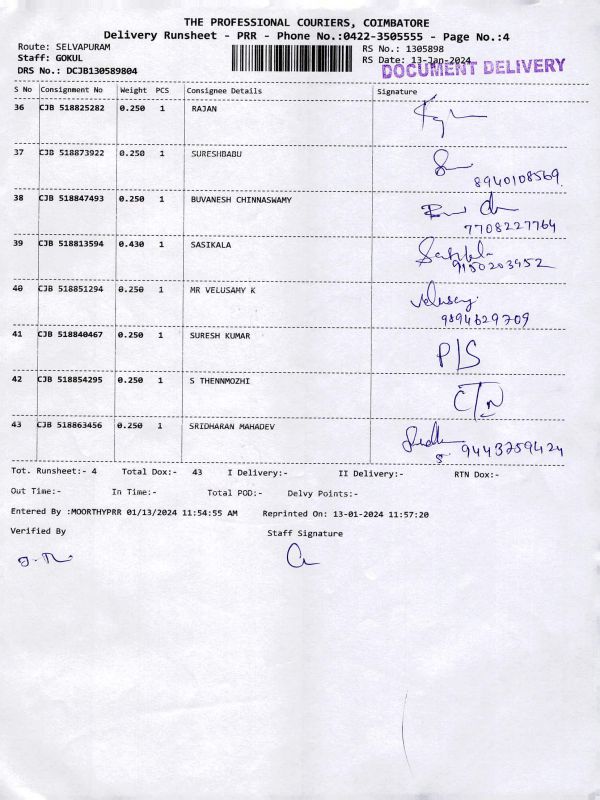 THE PROFESSIONAL COURIERS, COIMBATORE
Delivery Runsheet - PRR - Phone No.:0422-3505555 - Page No.:4
Route: SELVAPURAM RS No.: 1305898
Staff: GOKUL RS Date: 13-Jan-2024
DRS No.: DCJB130589804 DOCUMENT DELIVERY
S No Consignment No Weight PCS Consignee Details Signature
36 CJB 518825282 0.250 1 RAJAN
37 CJB 518873922 0.250 1 SURESHBABU
8940108569.
38 CJB 518847493 0.250 1 BUVANESH CHINNASWAMY
7708227764
39 CJB 518813594 0.430 1 SASIKALA
9150203952
40 CJB 518851294 0.250 1 MR VELUSAMY K Velusamy
9894629709
41 CJB 518840467 0.250 1 SURESH KUMAR P/S
42 CJB 518854295 0.250 1 S THENNMOZHI
43 CJB 518863456 0.250 1 SRIDHARAN MAHADEV
9443759424
Tot. Runsheet:- 4 Total Dox:- 43 I Delivery:- II Delivery:- RTN Dox:-
Out Time:- In Time:- Total POD:- Delvy Points:-
Entered By :MOORTHYPRR 01/13/2024 11:54:55 AM Reprinted On: 13-01-2024 11:57:20
Verified By Staff Signature